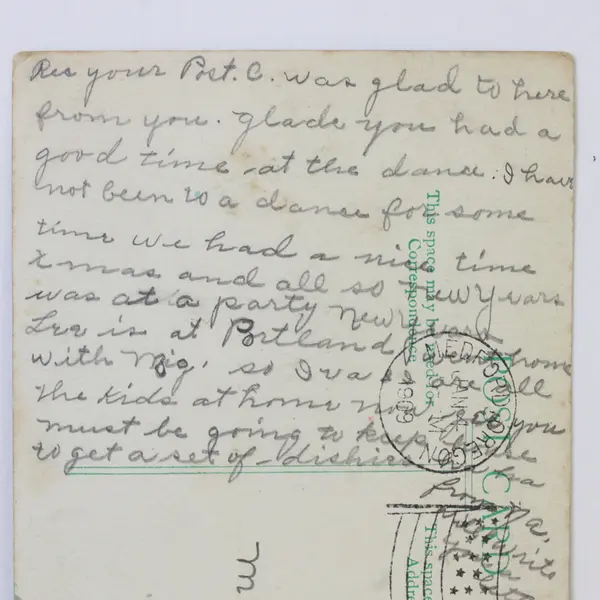 Rec your Post. C. was glad to here
from you. glade you had a
good time at the dance. I have
not been to a dance for some
time we had a nice time
Xmas and all so New Years
was at a party New Years
Lea is at Portland went home
with Mig. so I va are all
the kids at home now gee you
must be going to keep house
to get a set of dishes
from
write
This space may be used for
Correspondence
POST CARD
MEDFORD OREGON
JAN
1909
This space
Addre